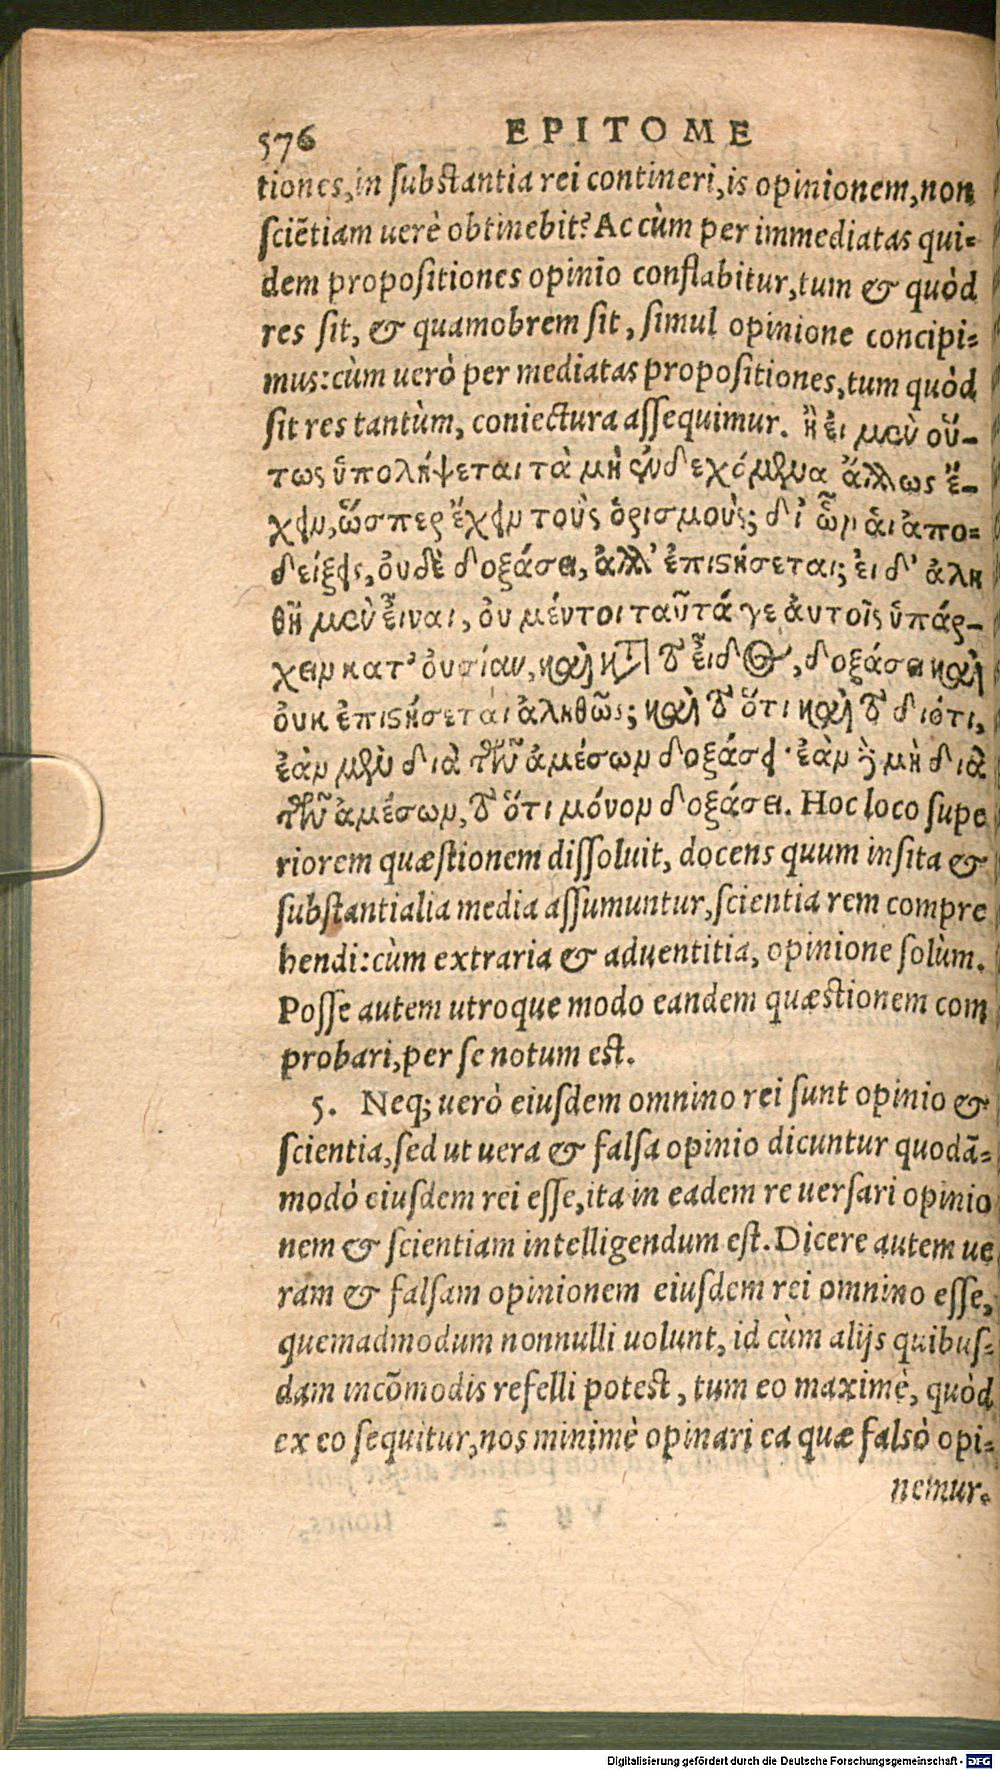 576 EPITOME
tiones, in substantia rei contineri, is opinionem, non
sciẽtiam uerè obtinebit? Ac cùm per immediatas qui-
dem propositiones opinio conflabitur, tum & quòd
res sit, & quamobrem sit, simul opinione concipi-
mus: cùm uerò per mediatas propositiones, tum quòd
sit res tantùm, coniectura assequimur. ἢ εἰ μὲν οὕ-
τως ὑπολήψεται τὰ μὴ ἐνδεχόμενα ἄλλως ἔ-
χειν, ὥσπερ ἔχειν τοὺς ὁρισμοὺς; δι' ὧν ἁι ἀπο-
δείξεις, ὀυδὲ δοξάσει, ἀλλ' ἐπιστήσεται; ἐι δ' ἀλη
θῆ μὲν ἐῖναι, ὀυ μέντοι ταῦτά γε ἀυτοῖς ὑπάρ-
χειν κατ' ὀυσίαν, καὶ κατὰ τὸ ἐῖδος, δοξάσει καὶ
ὀυκ ἐπιστήσεται ἀληθῶς; καὶ τὸ ὅτι καὶ τὸ διότι,
ἐὰν μὲν διὰ τῶν ἀμέσων δοξάσῃ· ἐὰν δὲ μὴ διὰ
τῶν ἀμέσων, τὸ ὅτι μόνον δοξάσει. Hoc loco supe
riorem quæstionem dissoluit, docens quum insita &
substantialia media assumuntur, scientia rem compre
hendi: cùm extraria & aduentitia, opinione solùm.
Posse autem utroque modo eandem quæstionem com
probari, per se notum est.
5. Neq; uerò eiusdem omnino rei sunt opinio &
scientia, sed ut uera & falsa opinio dicuntur quodã-
modò eiusdem rei esse, ita in eadem re uersari opinio
nem & scientiam intelligendum est. Dicere autem ue
ram & falsam opinionem eiusdem rei omnino esse,
quemadmodum nonnulli uolunt, id cùm alijs quibus-
dam incõmodis refelli potest, tum eo maximè, quòd
ex eo sequitur, nos minimè opinari ea quæ falsò opi-
nemur.
Digitalisierung gefördert durch die Deutsche Forschungsgemeinschaft - DFG